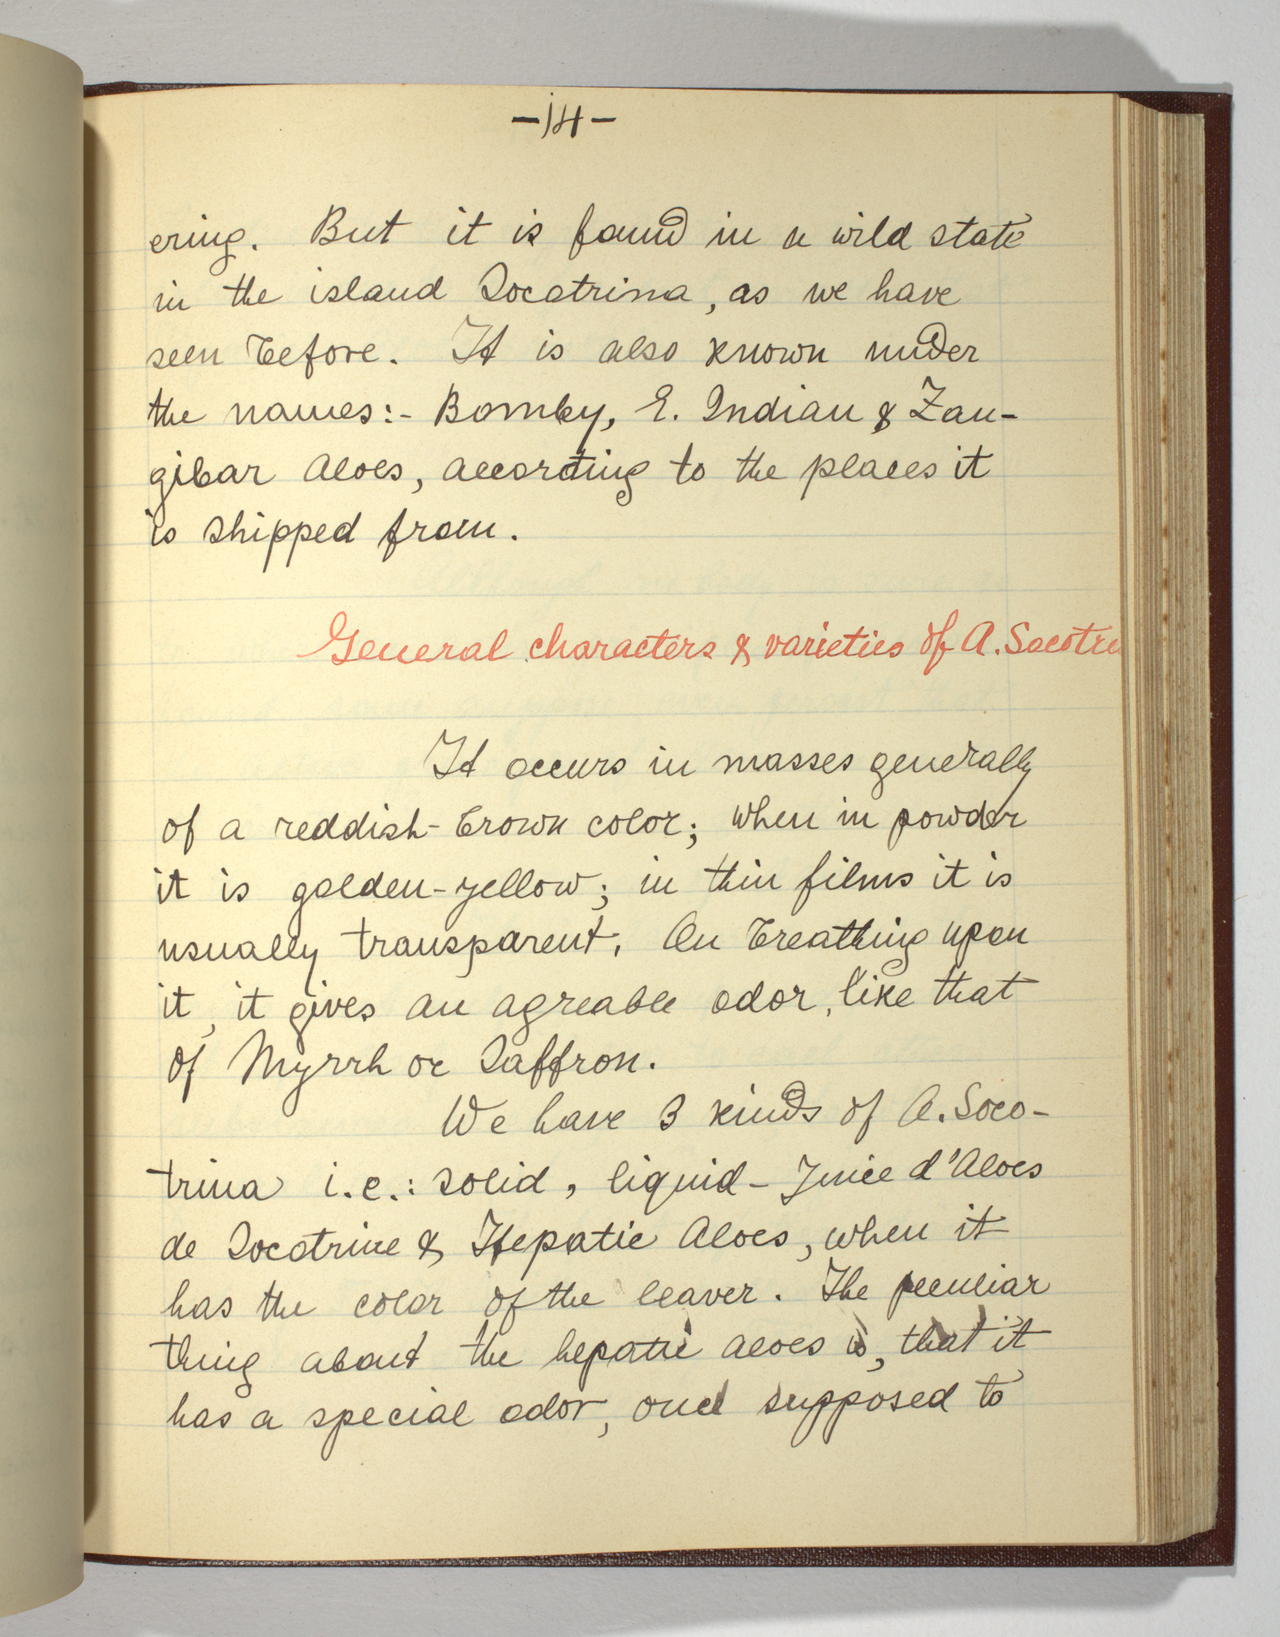 -14-
ering. But it is found in a wild state
in the island Socotrina, as we have
seen before. It is also known under
the names:- Bomby, E. Indian & Zan-
gibar Aloes, according to the places it
is shipped from.
General characters & varieties of A. Socotri
It occurs in masses generally
of a reddish-brown color; when in powder
it is golden-yellow; in thin films it is
usually transparent. On breathing upon
it, it gives an agreable odor, like that
of Myrrh or Saffron.
We have 3 kinds of A. Soco-
trina i.e.: solid, liquid - Juice d'Aloes
de Socotrine & Hepatic Aloes, when it
has the color of the leaver. The peculiar
thing about the hepatic aloes is, that it
has a special odor, and supposed to